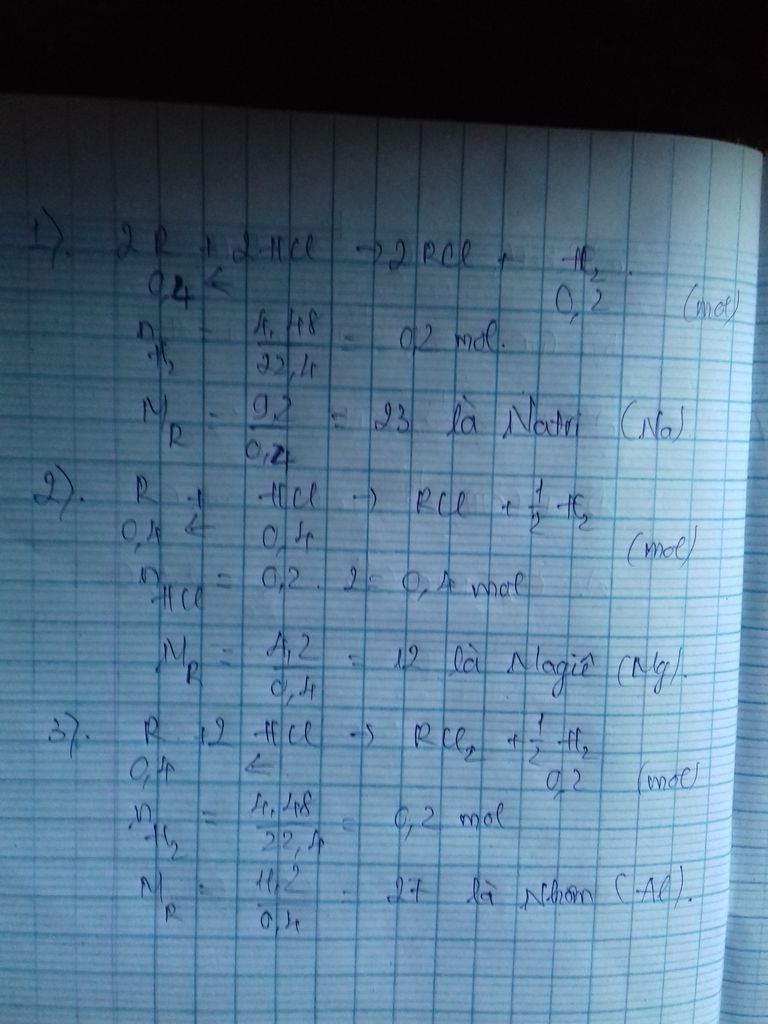 1). 2R + 2HCl → 2RCl + H₂.
0,4 ← 0,2 (mol)
n_H₂ = 4,48/22,4 = 0,2 mol.
M_R = 9,2/0,4 = 23 là Natri (Na)
2). R + HCl → RCl + 1/2 H₂
0,4 ← 0,4 (mol)
n_HCl = 0,2 . 2 = 0,4 mol
M_R = 4,2/0,4 = 12 là Magiê (Mg).
3). R + 2 HCl → RCl₂ + 1/2 H₂
0,4 ← 0,2 (mol)
n_H₂ = 4,48/22,4 = 0,2 mol
M_R = 11,2/0,4 = 27 là Nhôm (Al).